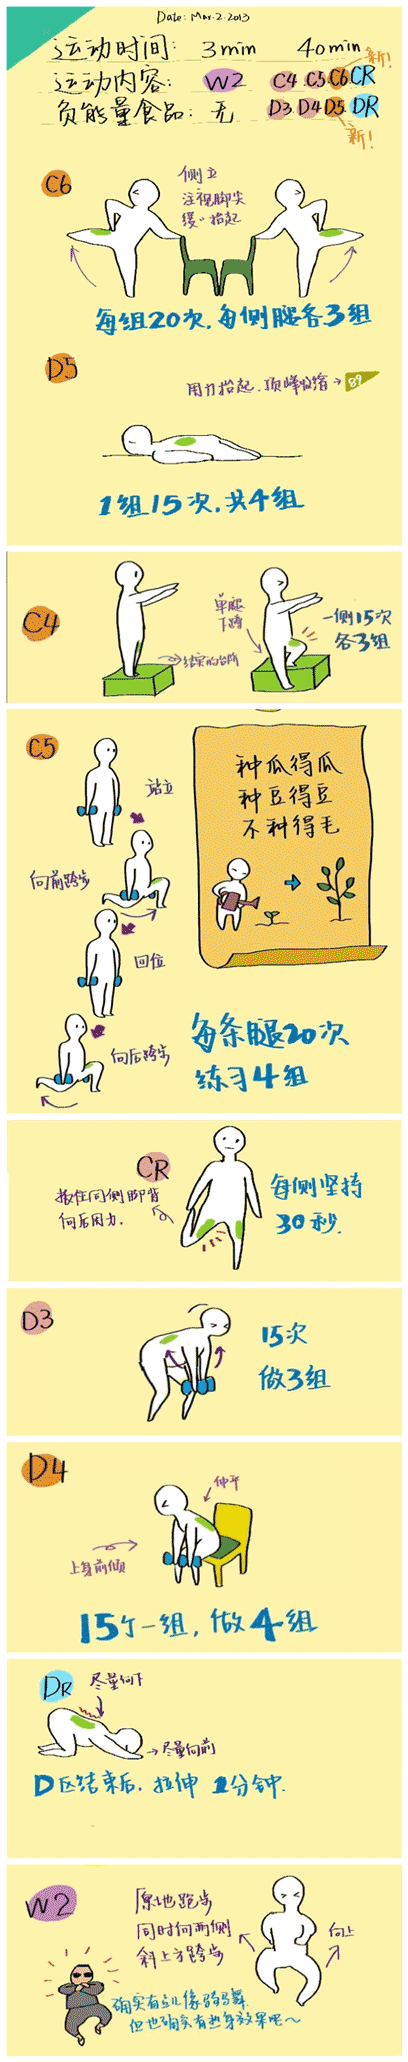 Date: Mar. 2. 2013
运动时间: 3min 40min
运动内容: W2 C4 C5 C6 CR
新!
负能量食品: 无 D3 D4 D5 DR
新!
C6
侧立
注视脚尖
缓缓抬起
每组20次,每侧腿各3组
D5
用力抬起,顶峰收缩→
1组15次,共4组
C4
单腿
下蹲
结实的台阶
一侧15次
各3组
C5
站立
向前跨步
回位
向后跨步
种瓜得瓜
种豆得豆
不种得毛
每条腿20次
练习4组
CR
扳住同侧脚背
向后用力.
每侧坚持
30秒.
D3
15次
做3组
D4
伸平
上身前倾
15个一组,做4组
DR
尽量向下
→尽量向前
D区结束后,拉伸 1分钟.
W2
原地跑步
同时向两侧
斜上方跨步
向上
确实有点儿像骑马舞
但也确实有热身效果呢~